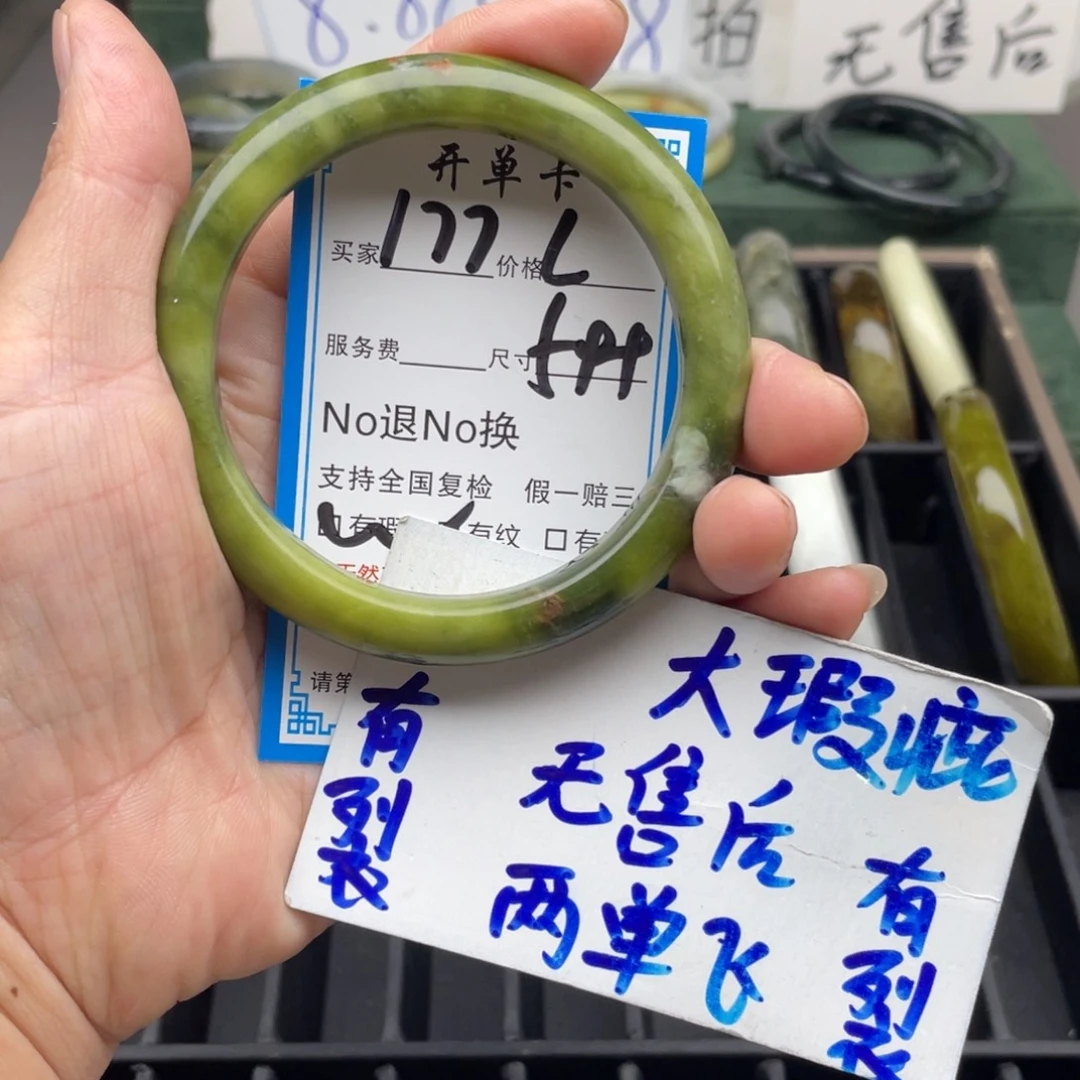 拍
无售后
开单卡
买家177 价格L
服务费 尺寸
No退No换
支持全国复检 假一赔三
有纹 口有
天然
请第
有裂
大瑕疵
无售后
两单飞
有裂